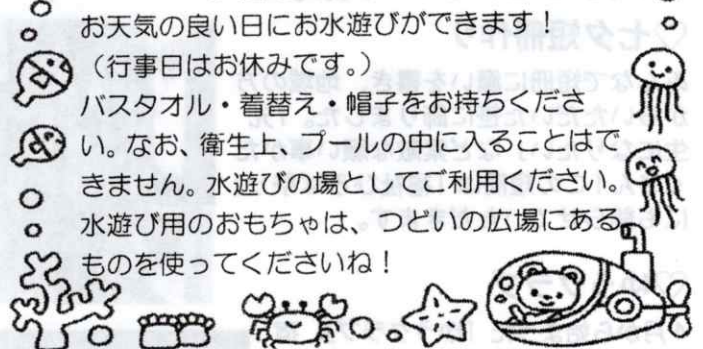 お天気の良い日にお水遊びができます！
（行事日はお休みです。）
バスタオル・着替え・帽子をお持ちくださ
い。なお、衛生上、プールの中に入ることはで
きません。水遊びの場としてご利用ください。
水遊び用のおもちゃは、つどいの広場にある
ものを使ってくださいね！